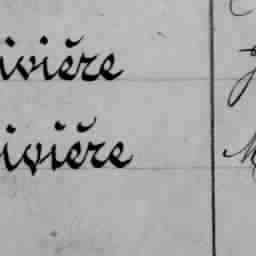 ivière
ivière